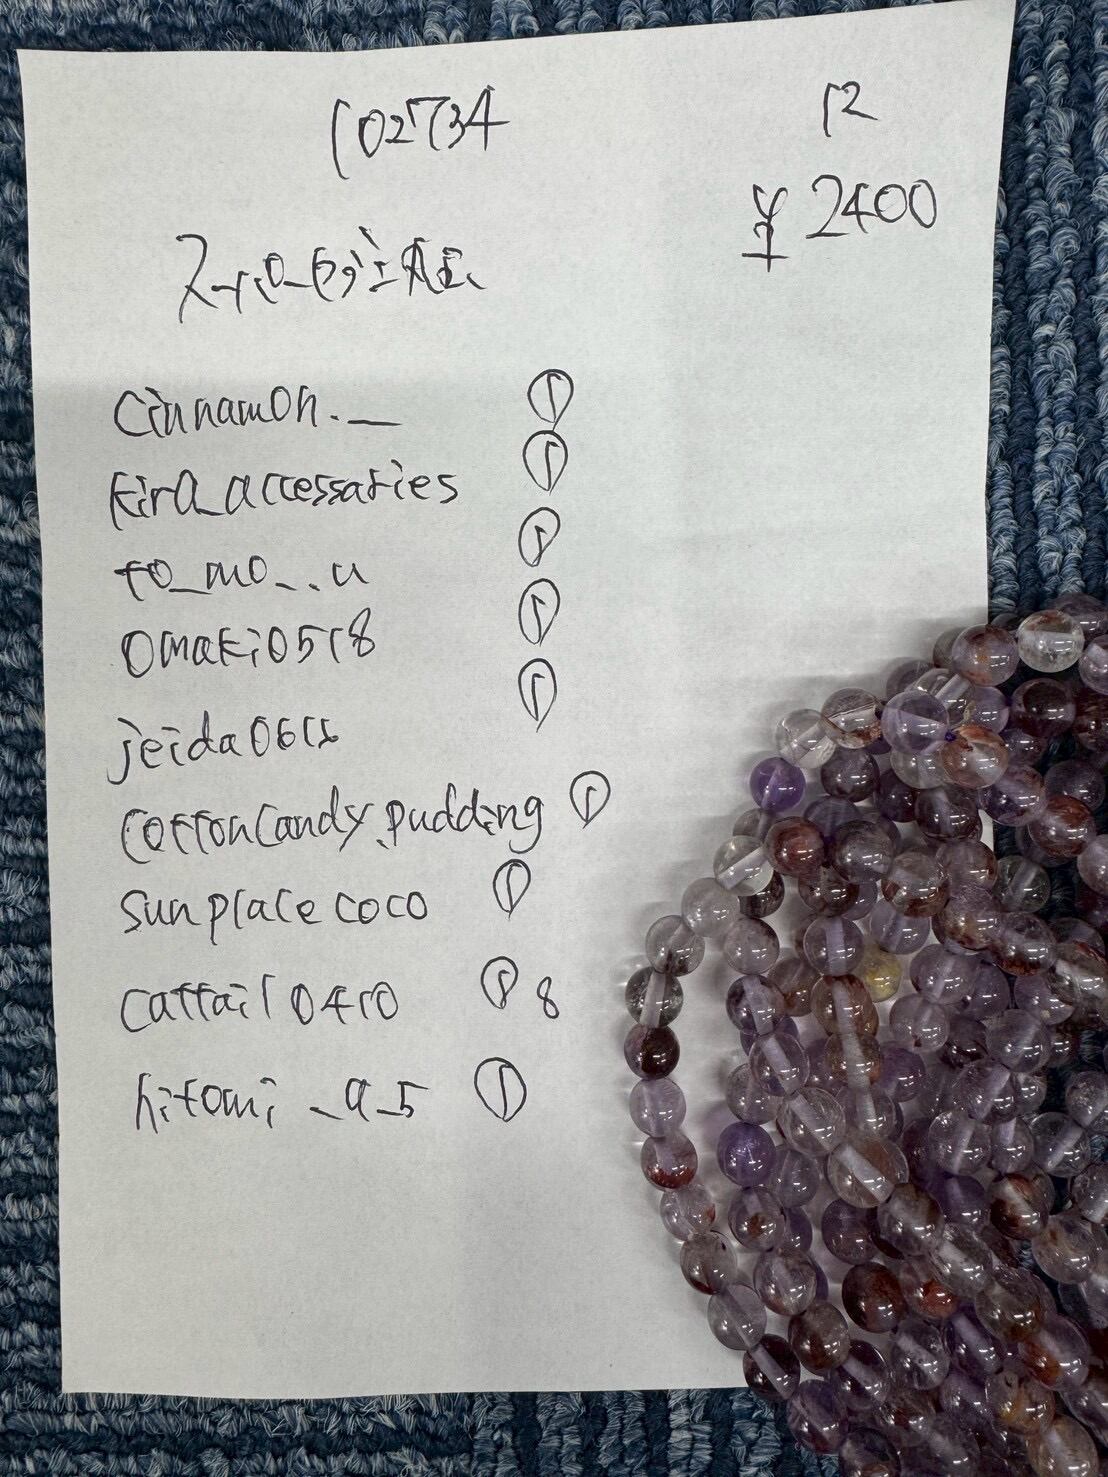 102734 12
¥2400
cinnamon._
kira_accessaries
to_mo_..u
omaki0518
jeida0618
cottoncandy.pudding ①
sunplacecoco ①
cattail0410 ① 8
hitomi_a_5 ①